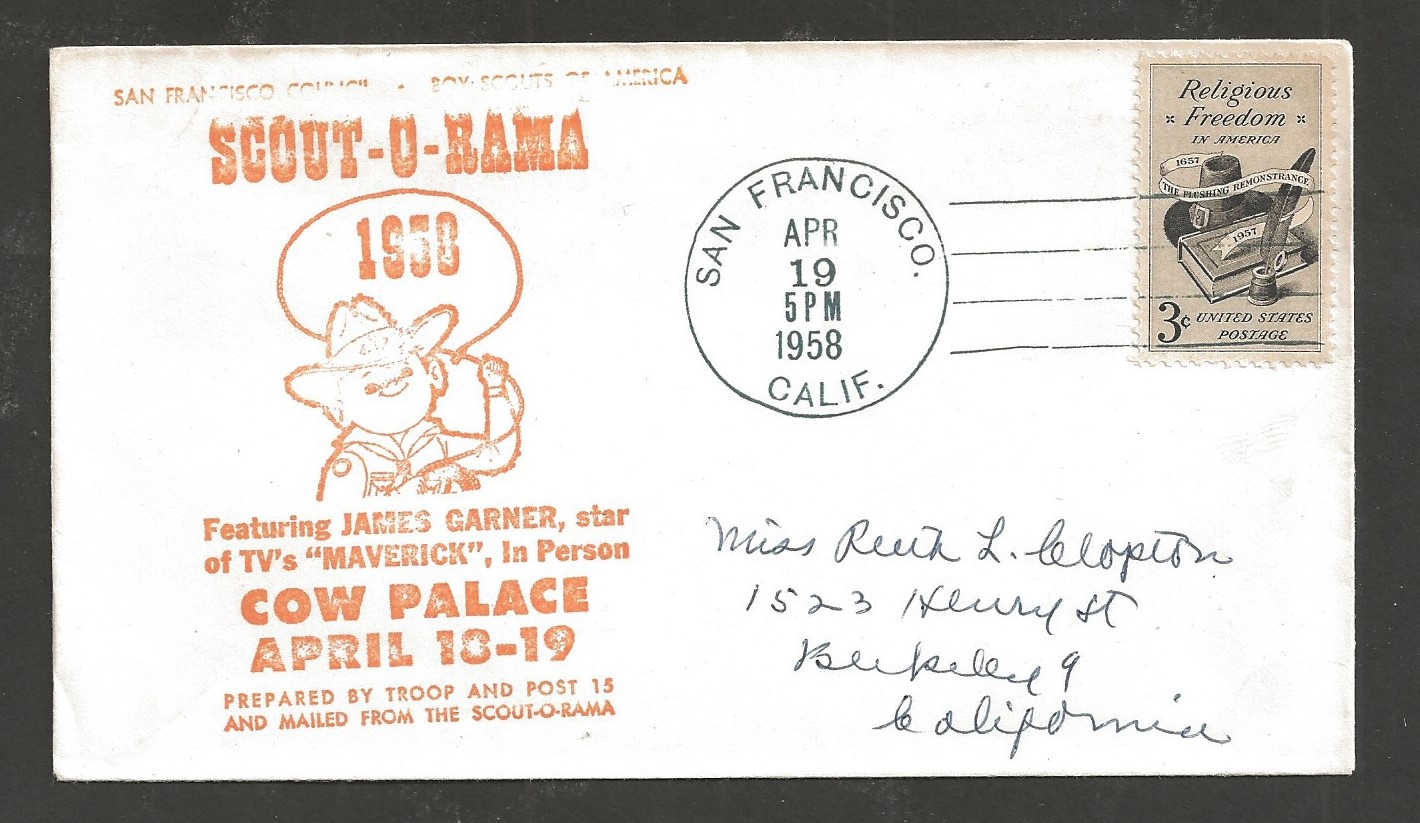 SAN FRANCISCO COUNCIL • BOY SCOUTS OF AMERICA
SCOUT-O-RAMA
1958
Featuring JAMES GARNER, star
of TV's "MAVERICK", In Person
COW PALACE
APRIL 18-19
PREPARED BY TROOP AND POST 15
AND MAILED FROM THE SCOUT-O-RAMA
SAN FRANCISCO.
APR
19
5 PM
1958
CALIF.
Religious
Freedom
IN AMERICA
1657
THE FLUSHING REMONSTRANCE
1957
3¢ UNITED STATES
POSTAGE
Miss Ruth L. Clopton
1523 Henry St
Berkeley 9
California